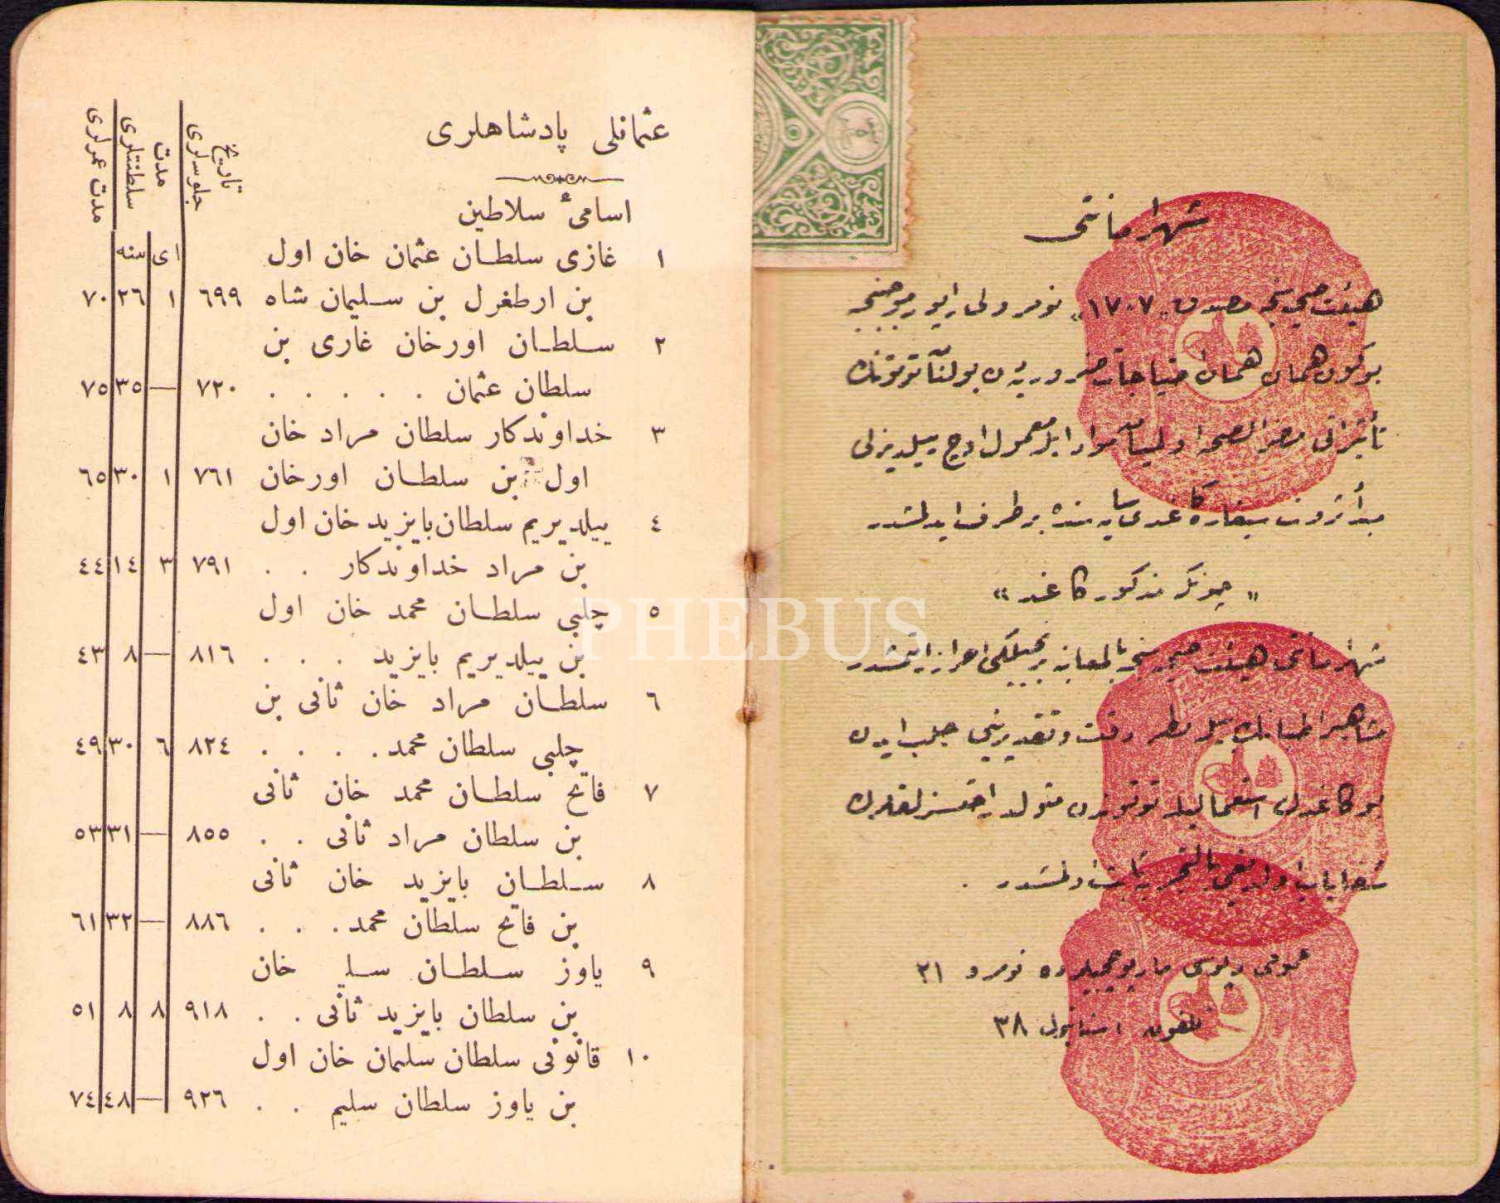 عثمانلی پادشاهلری
اسامئ سلاطین
تاریخ جلوسلری
مدت سلطنتلری
مدت عمرلری
ای سنه
١ غازی سلطان عثمان خان اول
بن ارطغرل بن سلیمان شاه ٦٩٩ ١ ٢٦ ٧٠
٢ سلطان اورخان غازی بن
سلطان عثمان . . . . . ٧٢٠ — ٣٥ ٧٥
٣ خداوندکار سلطان مراد خان
اول بن سلطان اورخان ٧٦١ ١ ٣٠ ٦٥
٤ ییلدیریم سلطان بایزید خان اول
بن مراد خداوندکار . . ٧٩١ ٣ ١٤ ٤٤
٥ چلبی سلطان محمد خان اول
بن ییلدیریم بایزید . . . ٨١٦ — ٨ ٤٣
٦ سلطان مراد خان ثانی بن
چلبی سلطان محمد . . . . ٨٢٤ ٦ ٣٠ ٤٩
٧ فاتح سلطان محمد خان ثانی
بن سلطان مراد ثانی . . ٨٥٥ — ٣١ ٥٣
٨ سلطان بایزید خان ثانی
بن فاتح سلطان محمد . . . ٨٨٦ — ٣٢ ٦١
٩ یاوز سلطان سلیم خان
بن سلطان بایزید ثانی . . ٩١٨ ٨ ٨ ٥١
١٠ قانونی سلطان سلیمان خان اول
بن یاوز سلطان سلیم . . ٩٢٦ — ٤٨ ٧٤
شهر امانتی
هیئت صحیه سنجه مصدق «١٧٠٧» نومرولی راپور موجبنجه
بوکون همان همان احتیاجات ضروریه دن بولنان توتونك
تأثیراتی مضر الصحه اولمیان مواد ایله معمول
سیغاره کاغدی سایه سنده برطرف ایدلمشدر
« چونکه مذکور کاغد »
شهر امانتی هیئت صحیه سنجه بالمعاینه برنجیلکی احراز ایتمشدر
مشاهیر اطبانك بیله نظر دقت و تقدیرینی جلب ایدن
بو کاغدك استعمالیله توتوندن متولد راحتسزلقلرك
اولدیغی بالتجربه ثابت اولمشدر .
عمومی دپوسی نومرو ٢١
تلفون استانبول ٣٨
PHEBUS